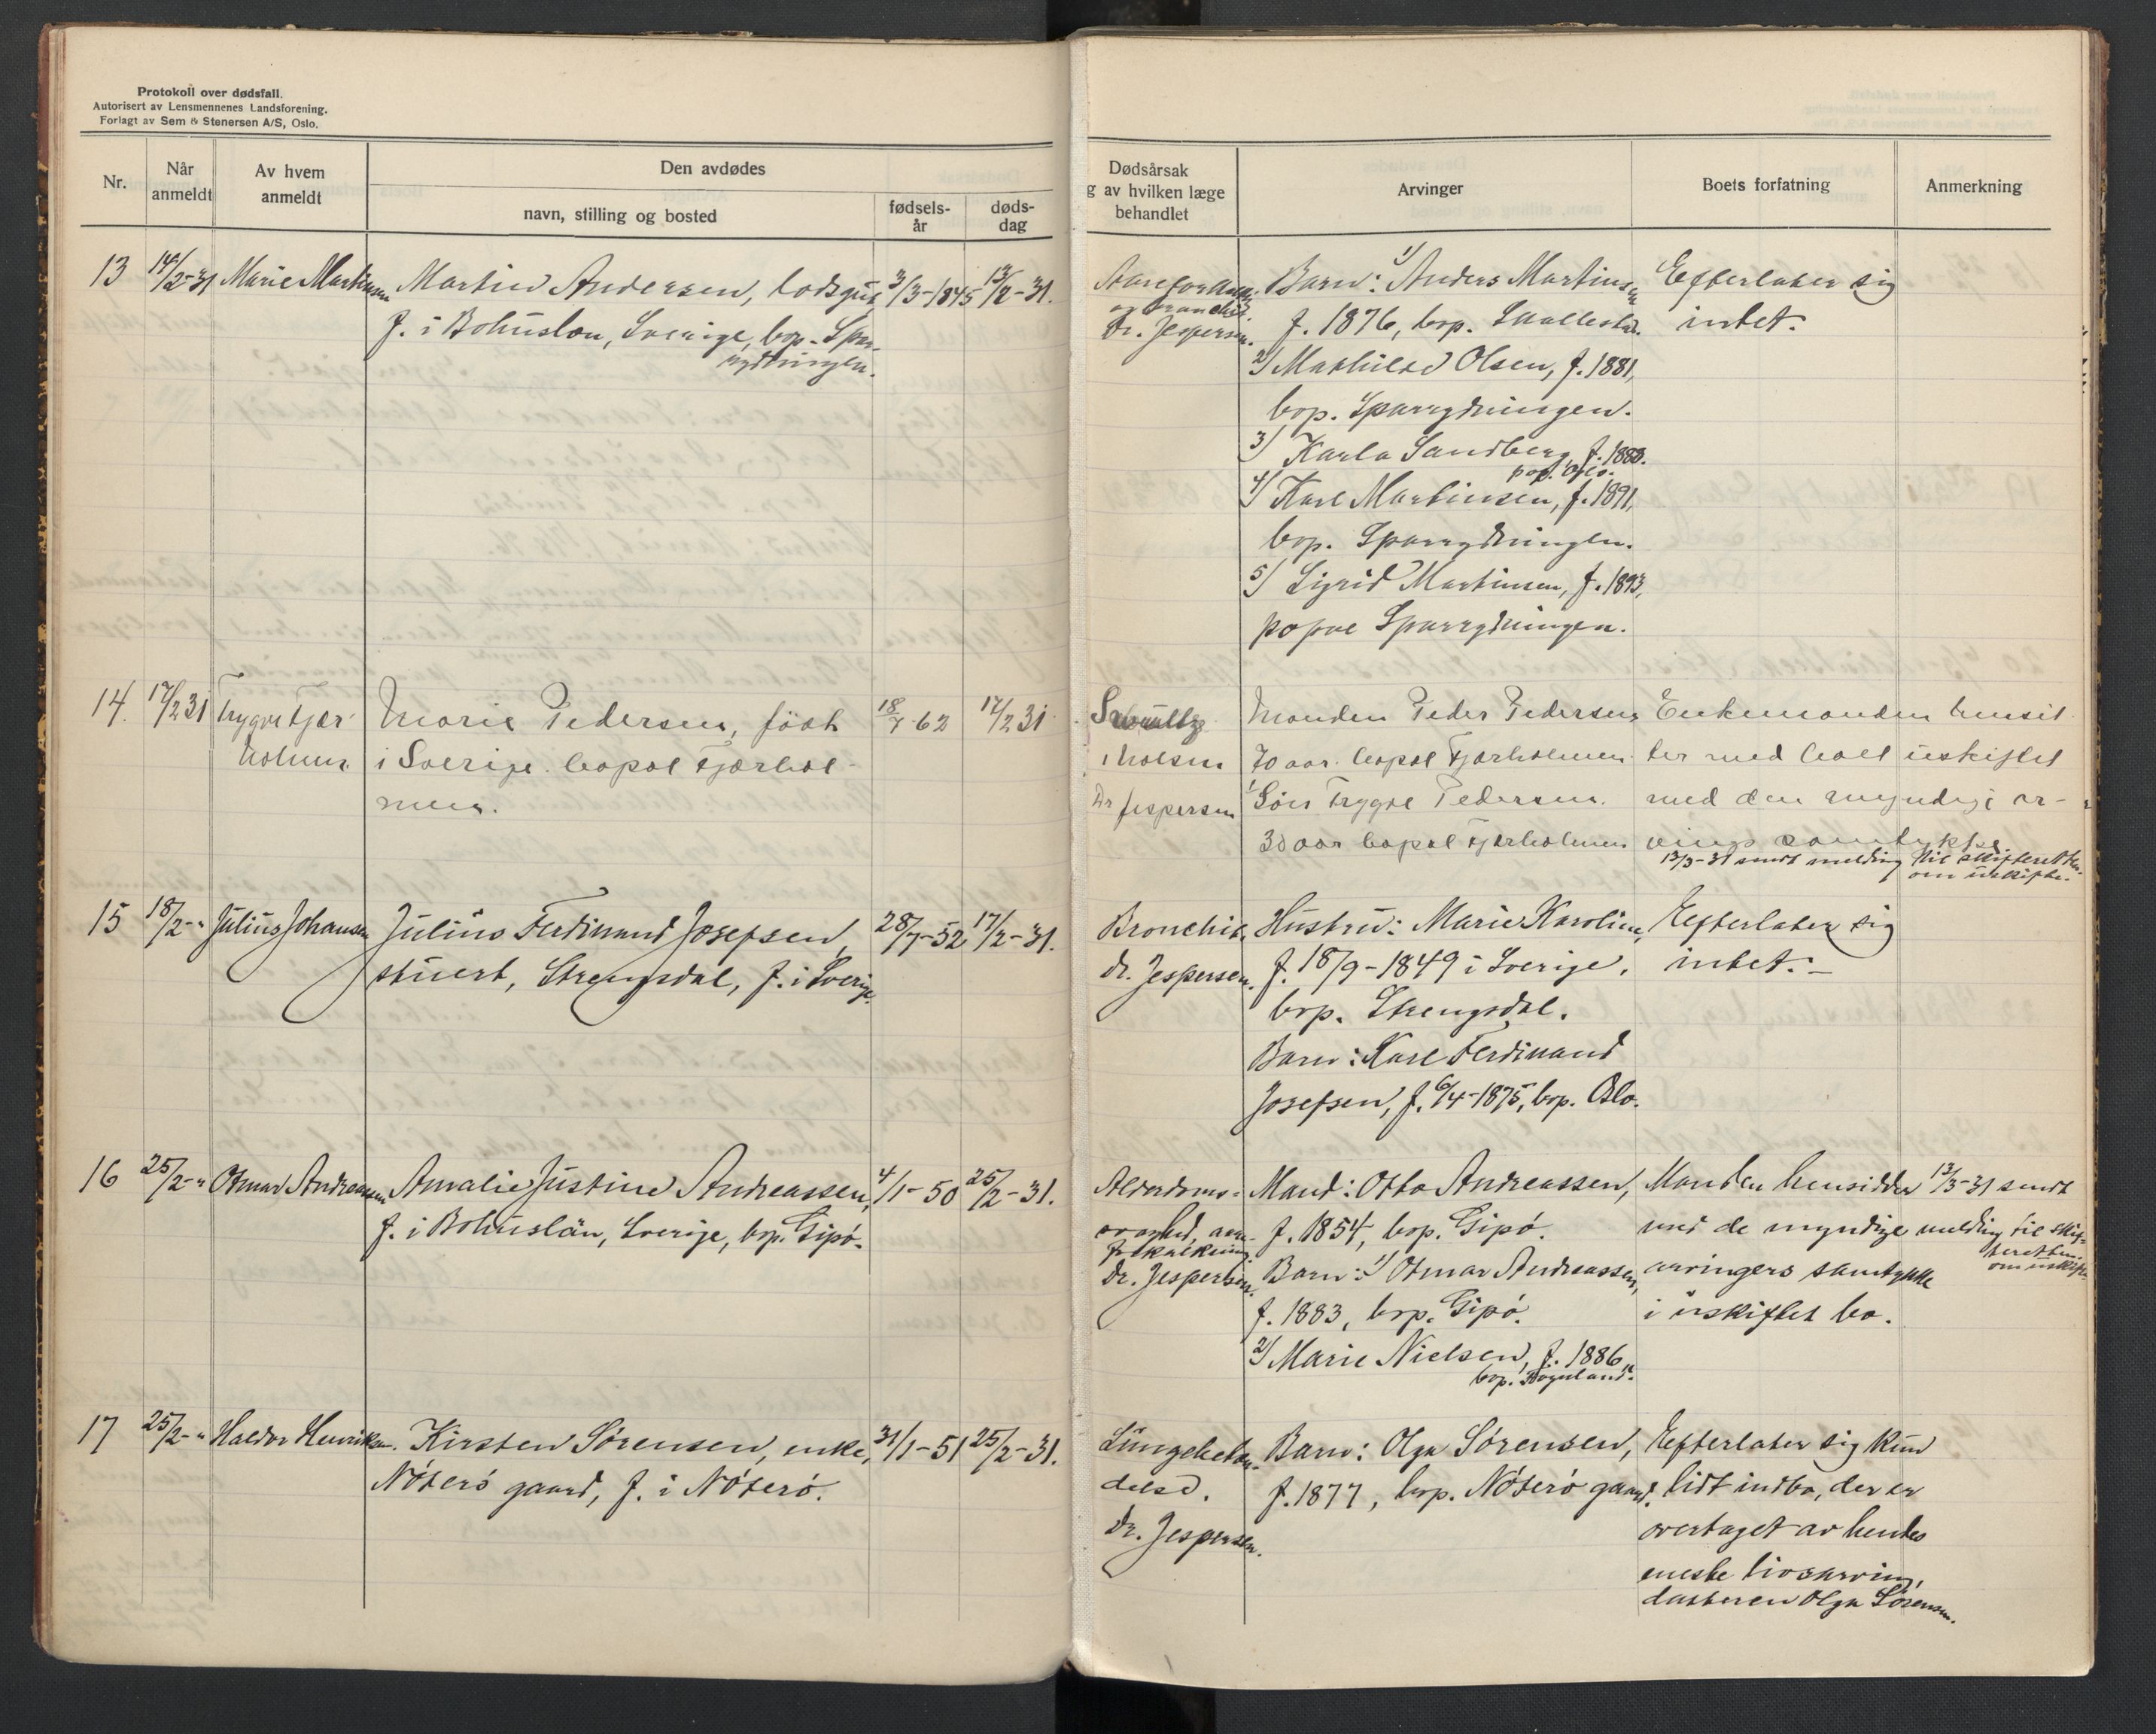 Protokoll over dødsfall.
Autorisert av Lensmennenes Landsforening.
Forlagt av Sem & Stenersen A/S, Oslo.
Nr.
Når anmeldt
Av hvem anmeldt
Den avdødes
navn, stilling og bosted
fødsels-år
døds-dag
Dødsårsak
g av hvilken læge
behandlet
Arvinger
Boets forfatning
Anmerkning
13
14/2-31
Marie Martinsen
Martin Andersen, lodsgut,
f. i Bohuslen, Sverige, bop. Spar-
rydningen.
3/3-1845
13/2-31.
Dr. Jespersen.
Barn: 1/ Anders Martinsen
f. 1876, bop.
2/ Mathilde Olsen, f. 1881,
bop. Sparrydningen.
3/ Karla Sandberg, f. 1888.
bop. Oslo.
4/ Karl Martinsen, f. 1891,
bop. Sparrydningen.
5/ Sigrid Martinsen, f. 1893,
Sparrydningen.
Efterlater sig
intet.
14.
17/2 31
Trygve Fjær-
holmen
Marie Pedersen, født
i Sverige. bopæl Fjærhol-
men.
18/7 62
17/2 31
Dr Jespersen
Manden Peder Pedersen
70 aar. bopæl Fjærholmen
1/ Søn Trygve Pedersen.
30 aar bopæl Fjærholmen
Enkemanden hensit-
ter med boet uskiftet
med den myndige ar-
vings samtykke
13/3-31 sendt melding til skifteretten
om uskifte.
15
18/2-"
Julius Johansen
Julius Ferdinand Josefsen,
stuert, Strengsdal, f. i Sverige.
28/7-52
17/2-31.
Bronchit.
dr. Jespersen.
Hustru: Marie Karoline,
f. 18/9-1849 i Sverige,
bop. Strengsdal.
Barn: Karl Ferdinand
Josefsen, f. 6/4-1875, bop. Oslo.
Efterlater sig
intet.-
16
25/2-"
Otmar Andreassen
Amalie Justine Andreassen,
f. i Bohuslän, Sverige, bop. Gipø.
4/1-50
25/2-31.
Alderdoms-
svaghed, aare-
forkalkning
Dr. Jespersen.
Mand: Otto Andreassen,
f. 1854, bop. Gipø.
Barn: 1/ Otmar Andreassen,
f. 1883, bop. Gipø.
2/ Marie Nielsen, f. 1886,
bop.
Manden hensidder
med de myndige
arvingers samtykke
i uskiftet bo.
13/3-31 sendt
melding til skif-
teretten
om uskifte
17
25/2-"
Haldor Henriksen.
Kirsten Sørensen, enke,
Nøterø gaard, f. i Nøterø.
31/1-51
25/2-31.
Lungebetæn-
delse.
Dr. Jespersen.
Barn: Olga Sørensen,
f. 1877, bop. Nøterø gaard.
Efterlater sig kun
lidt indbo, der er
overtaget av hendes
eneste livsarving,
datteren Olga Sørensen.